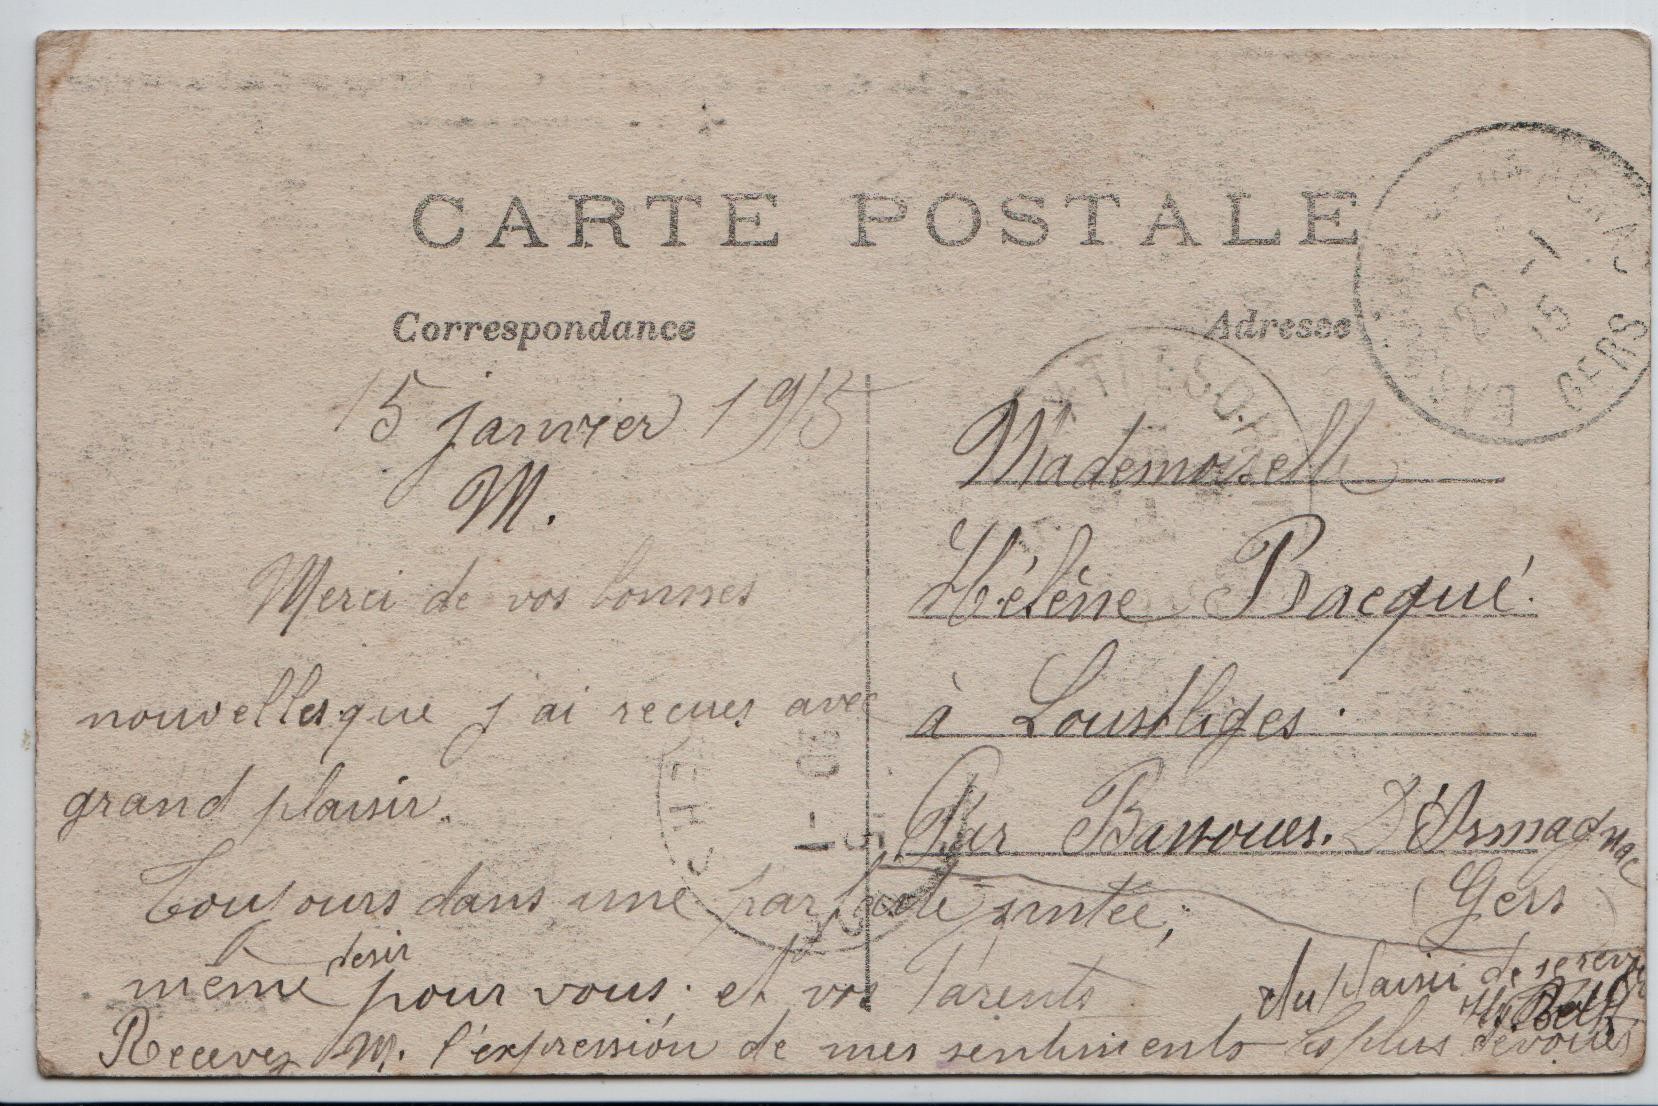 CARTE POSTALE
Correspondance
Adresse
15 janvier 1915
M.
Merci de vos bonnes
nouvelles que j'ai recues avec
grand plaisir.
Toujours dans une parfaide santée,
même desir pour vous. et vos Parents
Recevez M. l'expression de mes sentiments les plus dévoués
du plaisir de se revoir
Mademoiselle
Hélène Bacqué.
à Loustliges.
Par Barroues. D'Armagnac
(Gers)
GERS